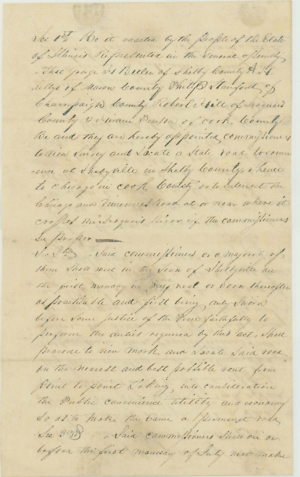 Sec 1st Be it enacted by the people of the State
of Illinois Represented in the General Assembly
That George
of Macon County Philip Stanford of
Champaign County Robert Hill of Iroquois
County & of Cook County
Be and they are hereby appointed commissioners
to view Survey and Locate a State road to commence
at Shelbyville in Shelby County thence
to Chicago in Cook County so to intersect the
Chicago and Vincennes Road at or near where it
crosses the Iroquois River if the commissioners
Sec 2nd Said commissioners or a majority of
them Shall meet in the Town of Shelbyville on
the first monday in May next or soon thereafter
as practicable and first being duly sworn
before some justice of the Peace faithfully to
perform the duties required by this act Shall
proceed to view mark and Locate Said road
on the nearest and best possible rout from
point to point Taking into consideration
the Public convenience utility and economy
so as to make the same a permanent road
Sec 3rd Said commissioners Shall on or
before the first monday of July next make